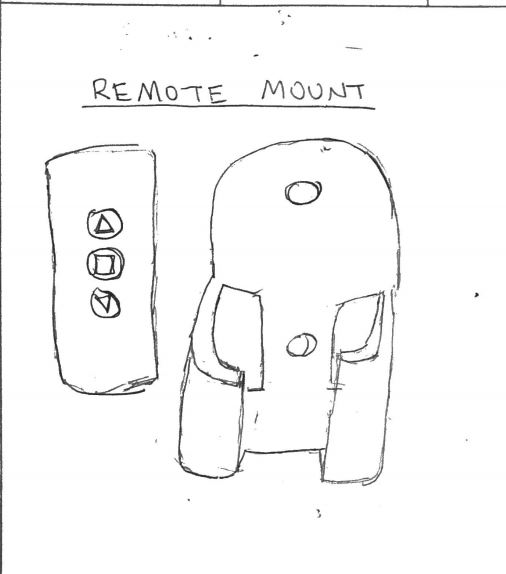 REMOTE MOUNT